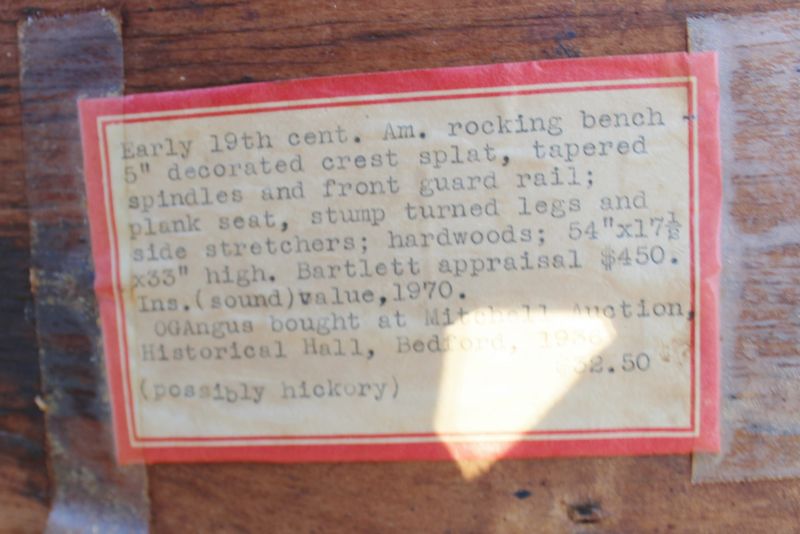 Early 19th cent. Am. rocking bench -
5" decorated crest splat, tapered
spindles and front guard rail;
plank seat, stump turned legs and
side stretchers; hardwoods; 54"x17½
x33" high. Bartlett appraisal $450.
Ins.(sound)value,1970.
OGAngus bought at Mitchell Auction,
Historical Hall, Bedford,
(possibly hickory)